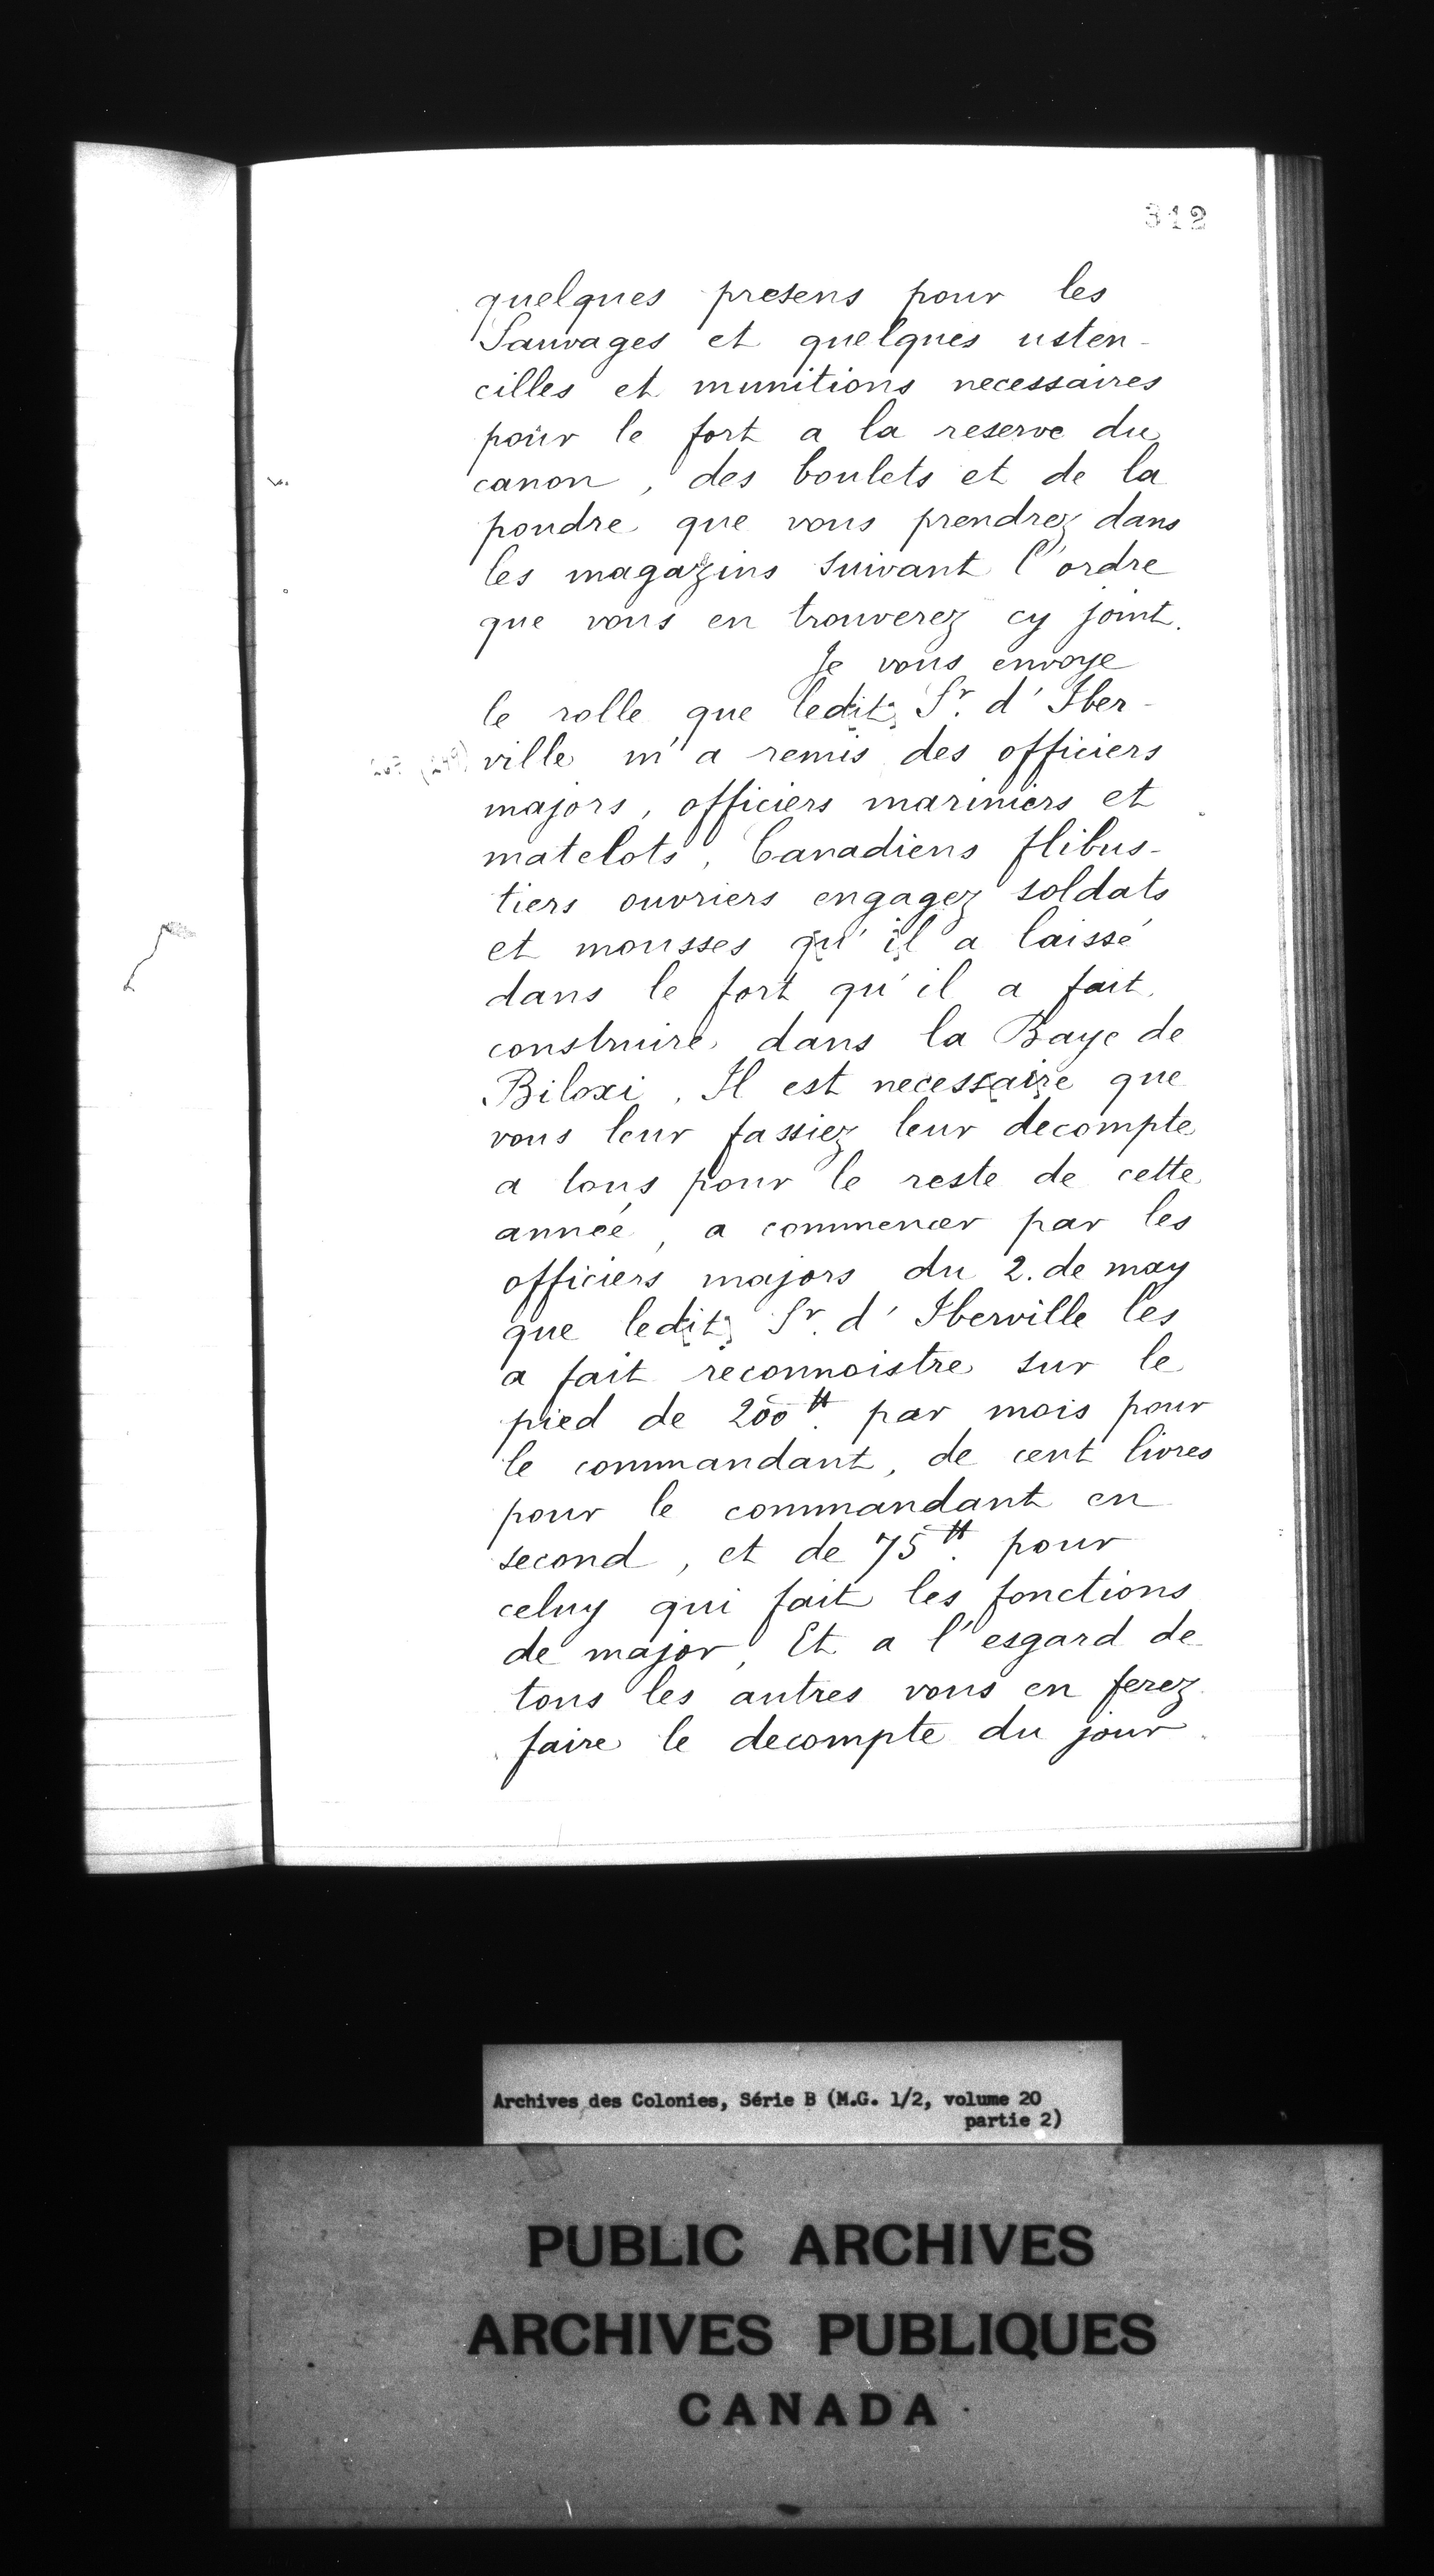 312
quelques presens pour les
Sauvages et quelques usten-
cilles et munitions necessaires
pour le fort a la reserve du
canon, des boulets et de la
poudre que vous prendrez dans
les magazins suivant l'ordre
que vous en trouverez cy joint.
Je vous envoye
le rolle que ledit Sr. d'Iber-
ville m'a remis des officiers
majors, officiers mariniers et
matelots, Canadiens flibus-
tiers ouvriers engagez soldats
et mousses qu'il a laissé
dans le fort qu'il a fait
construire dans la Baye de
Biloxi. Il est necessaire que
vous leur fassiez leur decompte
a tous pour le reste de cette
année, a commencer par les
officiers majors du 2. de may
que ledit Sr. d'Iberville les
a fait reconnoistre sur le
pied de 200 ₶. par mois pour
le commandant, de cent livres
pour le commandant en
second, et de 75 ₶. pour
celuy qui fait les fonctions
de major, Et a l'esgard de
tous les autres vous en ferez
faire le decompte du jour
Archives des Colonies, Série B (M.G. 1/2, volume 20
partie 2)
PUBLIC ARCHIVES
ARCHIVES PUBLIQUES
CANADA